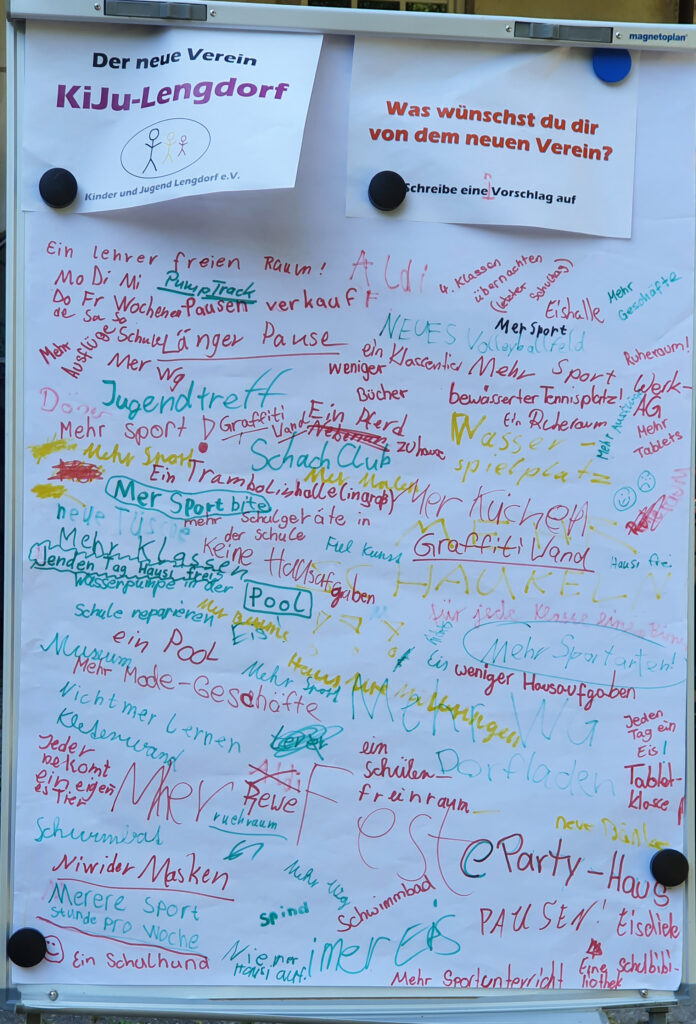 magnetoplan®
Der neue Verein
KiJu-Lengdorf
Kinder und Jugend Lengdorf e.V.
Was wünschst du dir
von dem neuen Verein?
Schreibe eine Vorschlag auf
Ein lehrer freien Raum!
Aldi
4. Klassen
übernachten
(letzter Schultag)
Mehr
Geschäfte
Mo Di Mi
Do Fr Wochenen
de Sa So
PumpTrack
Pausen verkauf!
Eishalle
Mer Sport
NEUES Volleyballfeld
Mehr
Ausflüge
Schule
Länger Pause
Mer Wg
ein Klassentier
weniger
Bücher
Mehr Sport
Ruheraum!
bewässerter Tennisplatz!
Werk-
AG
Mehr
Tablets
Jugendtreff
Döner
Mehr Sport!
Graffiti
Wand
Ein Pferd
zuhause
Ein Ruheraum
Wasser-
spielplatz
Mehr Sport
Schach Club
Mer Malen
Ein Trambolinhalle (in groß)
Mer Sport bite
Mer Kuchen
neue Tüsche
mehr Schulgeräte in
der Schule
Mehr Klassen
Keine Hausaufgaben
Fiel Kunst
Graffiti Wand
Hausi frei
SCHAUKELN
Jenden Tag Hausi frei
Wasserpumpe in der
Schule reparieren
Pool
Eis!
ein Pool
Mehr Sportarten!
Museum
Mehr Mode-Geschäfte
Mehr Sport
Eis
weniger Hausaufgaben
Nicht mer lernen
Kletterwand
Mehr Wg
Jeden
Tag ein
Eis!
Dorfladen
Jeder
bekomt
ein eigen
es Tier
Mer Feste
Aldi
Rewe
ruehraum
ein
Schülen-
freinraum
Tablet-
klasse!
neue Bänke
Schwimbat
Party-Haus
Niwider Masken
Merere Sport
Stunde pro Woche
Mehr Wg!
Spind
Schwimmbad
PAUSEN!
Eisdiele
Ein Schulhund
Niemer
Hausi auf!
imer Eis
Mehr Sportunterricht
Eine Schulbibi-
liothek